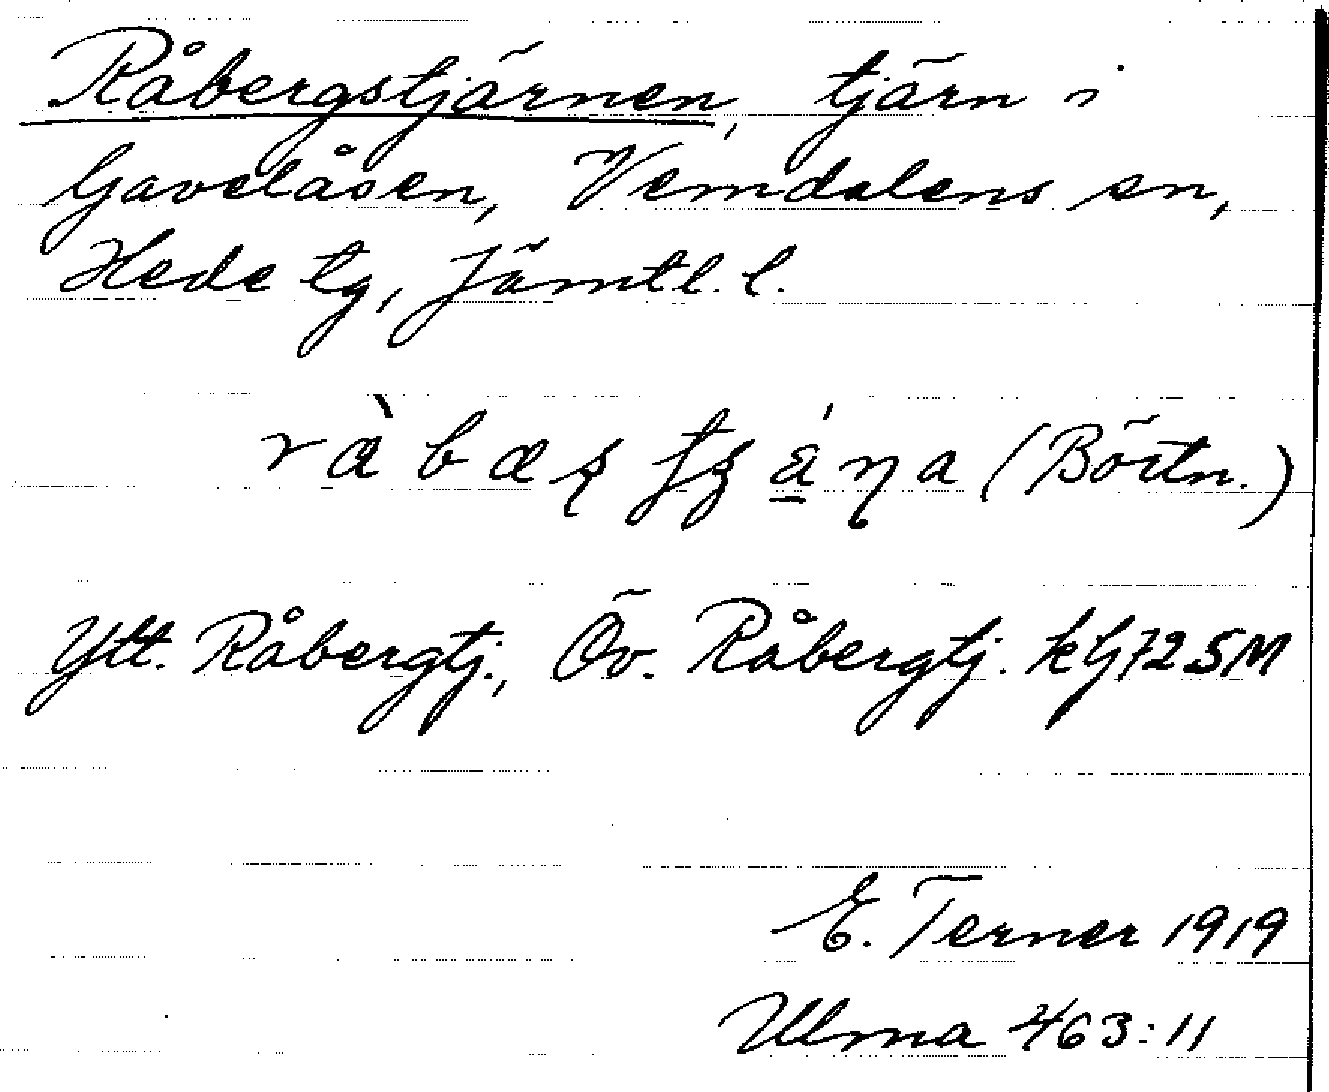 Råbergstjärnen, tjärn i
Gavelåsen, Vemdalens sn,
Hede tg, Jämtl. l.
(Börtn.)
Ytt. Råbergtj., Öv. Råbergtj. kG72SM
E. Terner 1919
Ulma 463:11